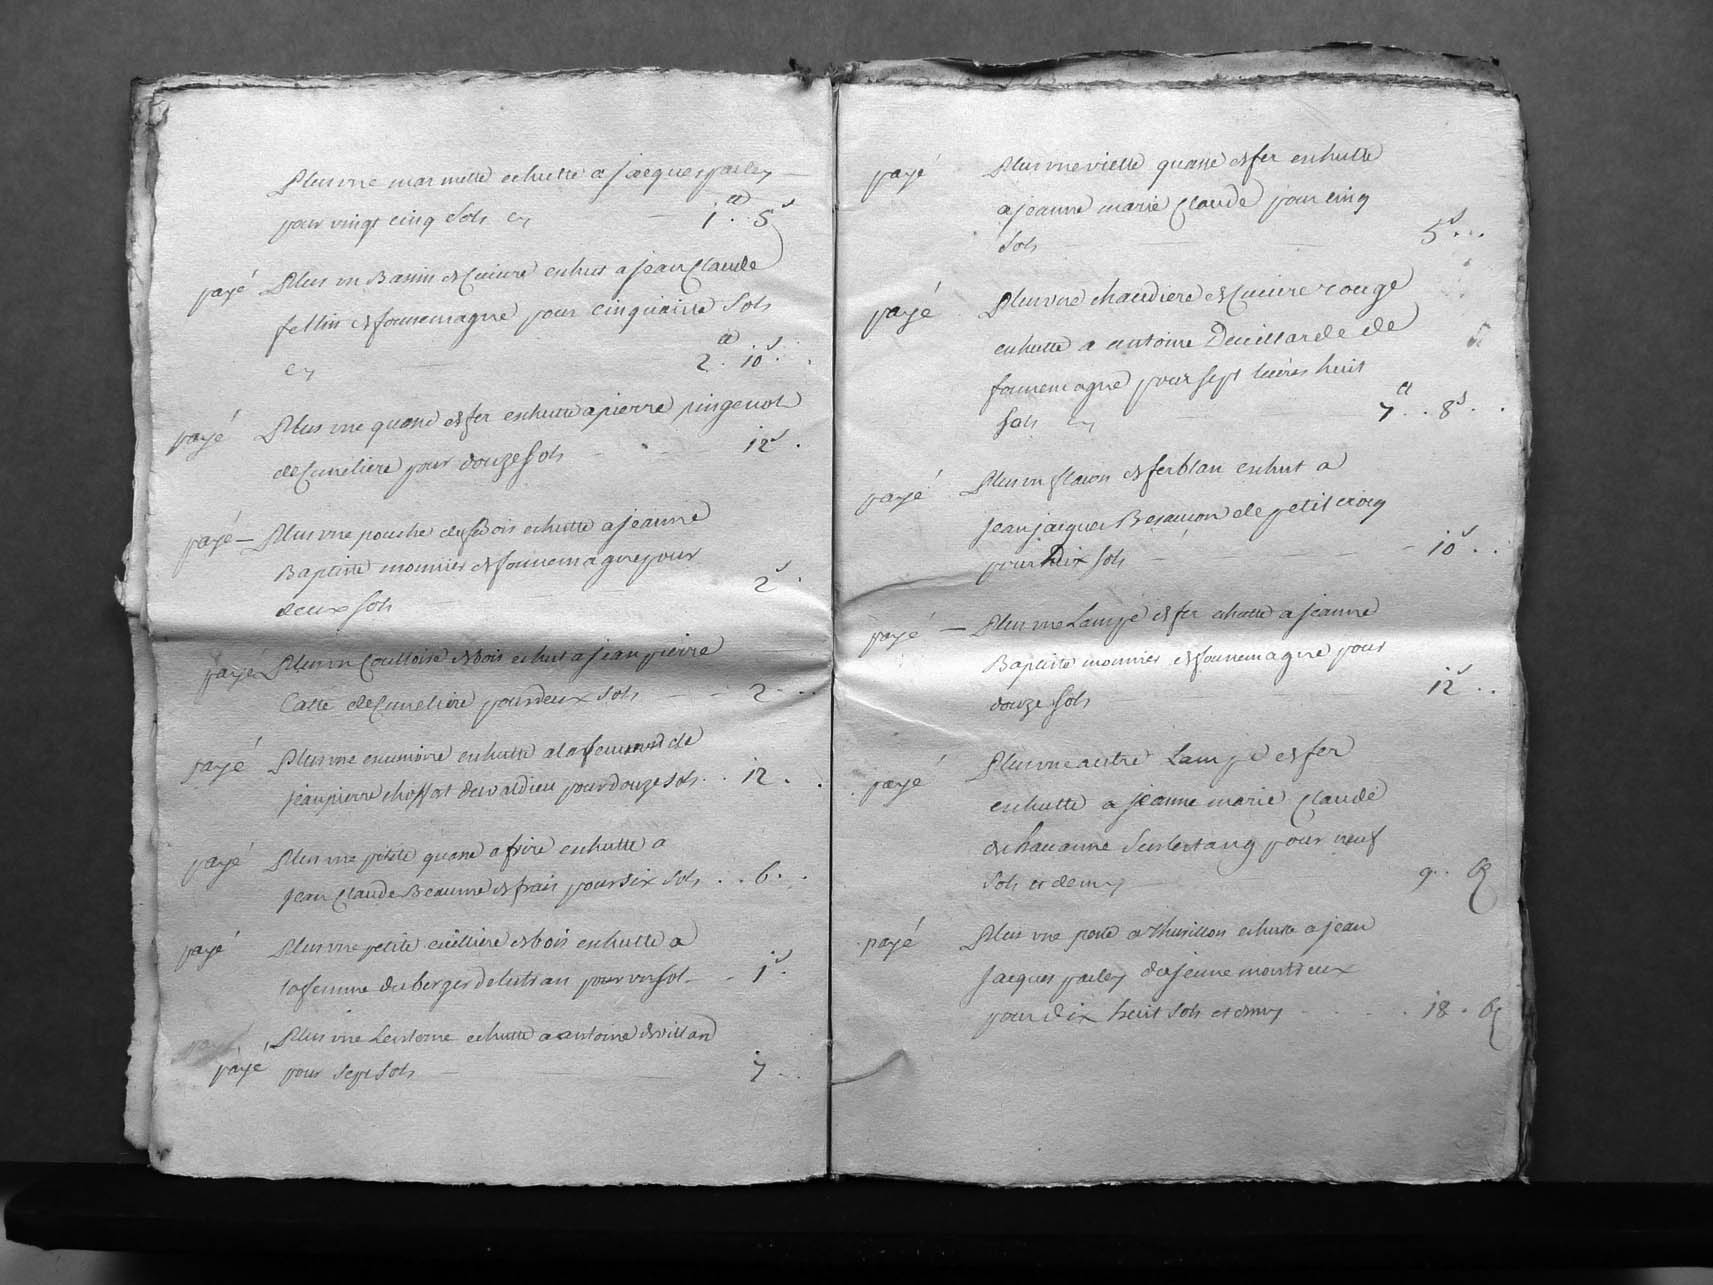 Plus vne marmitte echutte a jacques parley
pour vingt cinq sols cy 1 tt 5 s
payé Plus vn Bassin de Cuivre echut a jean Claude
fellin de fonnemagne pour cinquante sols
cy 2 tt 10 s
payé Plus vne quasse de fer echutte a pierre pingenot
de Cuneliere pour douze sols 12 s
payé Plus vne pouche de Bois echutte a jeanne
Baptiste monnier de fonnemagne pour
deux sols 2 s
payé Plus vn de bois echut a jean pierre
Catte de Cuneliere pour deux sols 2
payé Plus vne echutte a la femme de
jean pierre choffat de valdieu pour douze sols 12
payé Plus vne petite quasse a frire echutte a
jean Claude Beaume de frais pour six sols 6
payé Plus vne petite de bois echutte a
la femme du berger de lutran pour vn sol 1 s
Plus vne Lenterne echutte a antoine devillard
payé pour sept sols 7
payé Plus vne vielle quasse de fer echutte
a jeanne marie Claude pour cinq
sols 5 s
payé Plus vne chaudiere de Cuivre rouge
echutte a antoine Deuillarde de
fonnemagne pour sept livres huit
sols cy 7 tt 8 s
payé Plus vn flacon de fer blan echut a
jean jacques Besancon de petit croix
pour Dix sols 10 s
payé Plus vne Lampe de fer echutte a jeanne
Baptiste monnier de fonnemagne pour
douze sols 12 s
payé Plus vne autre Lampe de fer
echutte a jeanne marie Claude
de chauanne sur lestang pour neuf
sols et demy 9
payé Plus vne echutte a jean
jacques parley de jeune montreux
pour dix huit sols et demy 18